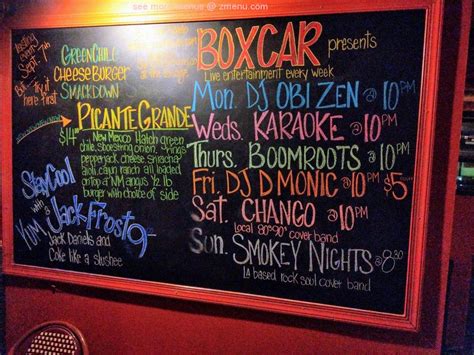 see more menus @ zmenu.com
tasting
event
Sept. 7th
But try it
here first
GREEN CHILE
CHEESEBURGER
SMACKDOWN
PICANTE GRANDE
$14
New Mexico Hatch green
chile, shoestring onion rings
pepperjack cheese, sriracha
aioli, cajun ranch all loaded
on top a NM angus 1/2 lb
burger with choice of side
Stay Cool
with a
YUM
Jack Frost 9
Jack Daniels and
Coke like a slushee
BOXCAR presents
Live entertainment every week
MON. DJ OBI ZEN @ 10PM
WEDS. KARAOKE @ 10PM
THURS. BOOMROOTS @ 10PM
FRI. DJ D MONIC @ 10PM $5
SAT. CHANGO @ 10PM
Local 80s90s cover band
SUN. SMOKEY NIGHTS @ 8:30
LA based rock soul cover band